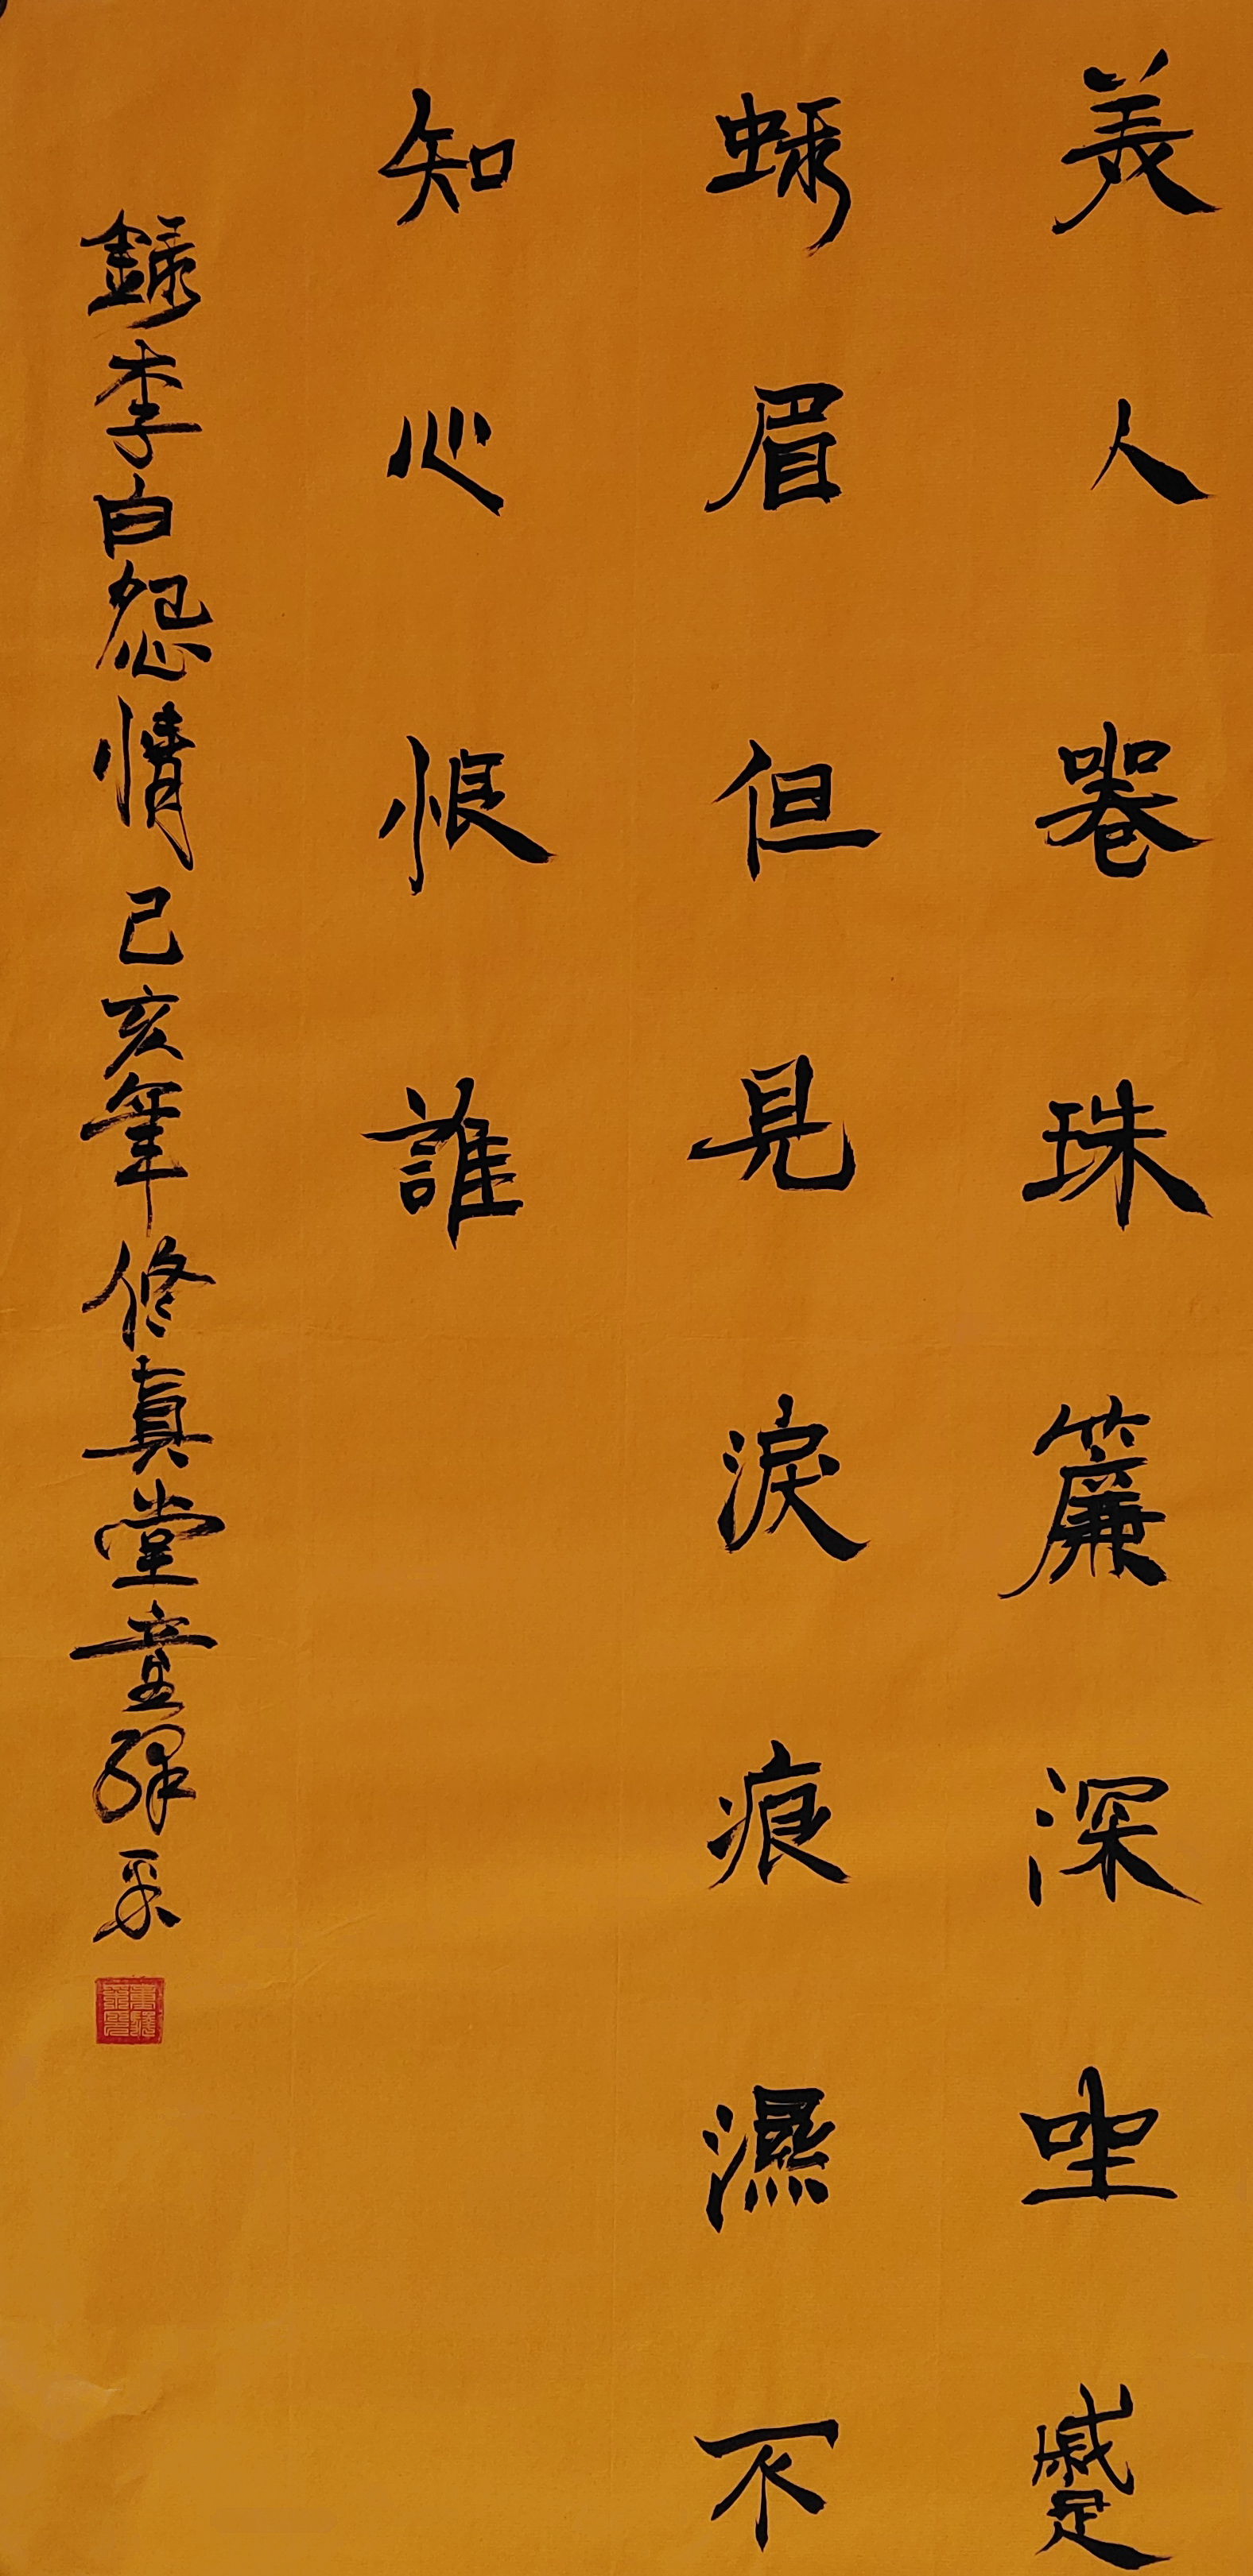 美人卷珠簾深坐蹙
蛾眉但見淚痕濕不
知心恨誰
錄李白怨情己亥年修真堂童